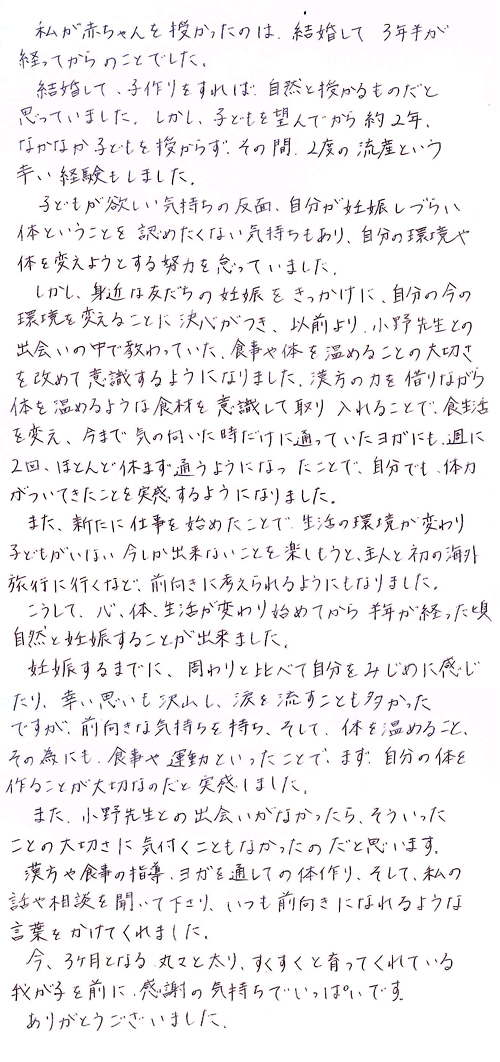 私が赤ちゃんを授かったのは、結婚して 3年半が
経ってからのことでした。
結婚して、子作りをすれば、自然と授かるものだと
思っていました。しかし、子どもを望んでから約2年、
なかなか子どもを授からず、その間、2度の流産という
辛い経験もしました。
子どもが欲しい気持ちの反面、自分が妊娠しづらい
体ということを認めたくない気持ちもあり、自分の環境や
体を変えようとする努力を怠っていました。
しかし、身近な友だちの妊娠をきっかけに、自分の今の
環境を変えることに決心がつき、以前より、小野先生との
出会いの中で教わっていた、食事や体を温めることの大切さ
を改めて意識するようになりました。漢方の力を借りながら
体を温めるような食材を意識して取り入れることで、食生活
を変え、今まで気の向いた時だけに通っていたヨガにも、週に
2回、ほとんど休まず通うようになったことで、自分でも、体力
がついてきたことを実感するようになりました。
また、新たに仕事を始めたことで、生活の環境が変わり
子どもがいない今しか出来ないことを楽しもうと、主人と初の海外
旅行に行くなど、前向きに考えられるようにもなりました。
こうして、心、体、生活が変わり始めてから半年が経った頃
自然と妊娠することが出来ました。
妊娠するまでに、周わりと比べて自分をみじめに感じ
たり、辛い思いも沢山し、涙を流すことも多かった
ですが、前向きな気持ちを持ち、そして、体を温めること、
その為にも、食事や運動といったことで、まず、自分の体を
作ることが大切なのだと実感しました。
また、小野先生との出会いがなかったら、そういった
ことの大切さに気付くこともなかったのだと思います。
漢方や食事の指導、ヨガを通しての体作り、そして、私の
話や相談を聞いて下さり、いつも前向きになれるような
言葉をかけてくれました。
今、3ヶ月となる丸々と太り、すくすくと育ってくれている
我が子を前に、感謝の気持ちでいっぱいです。
ありがとうございました。